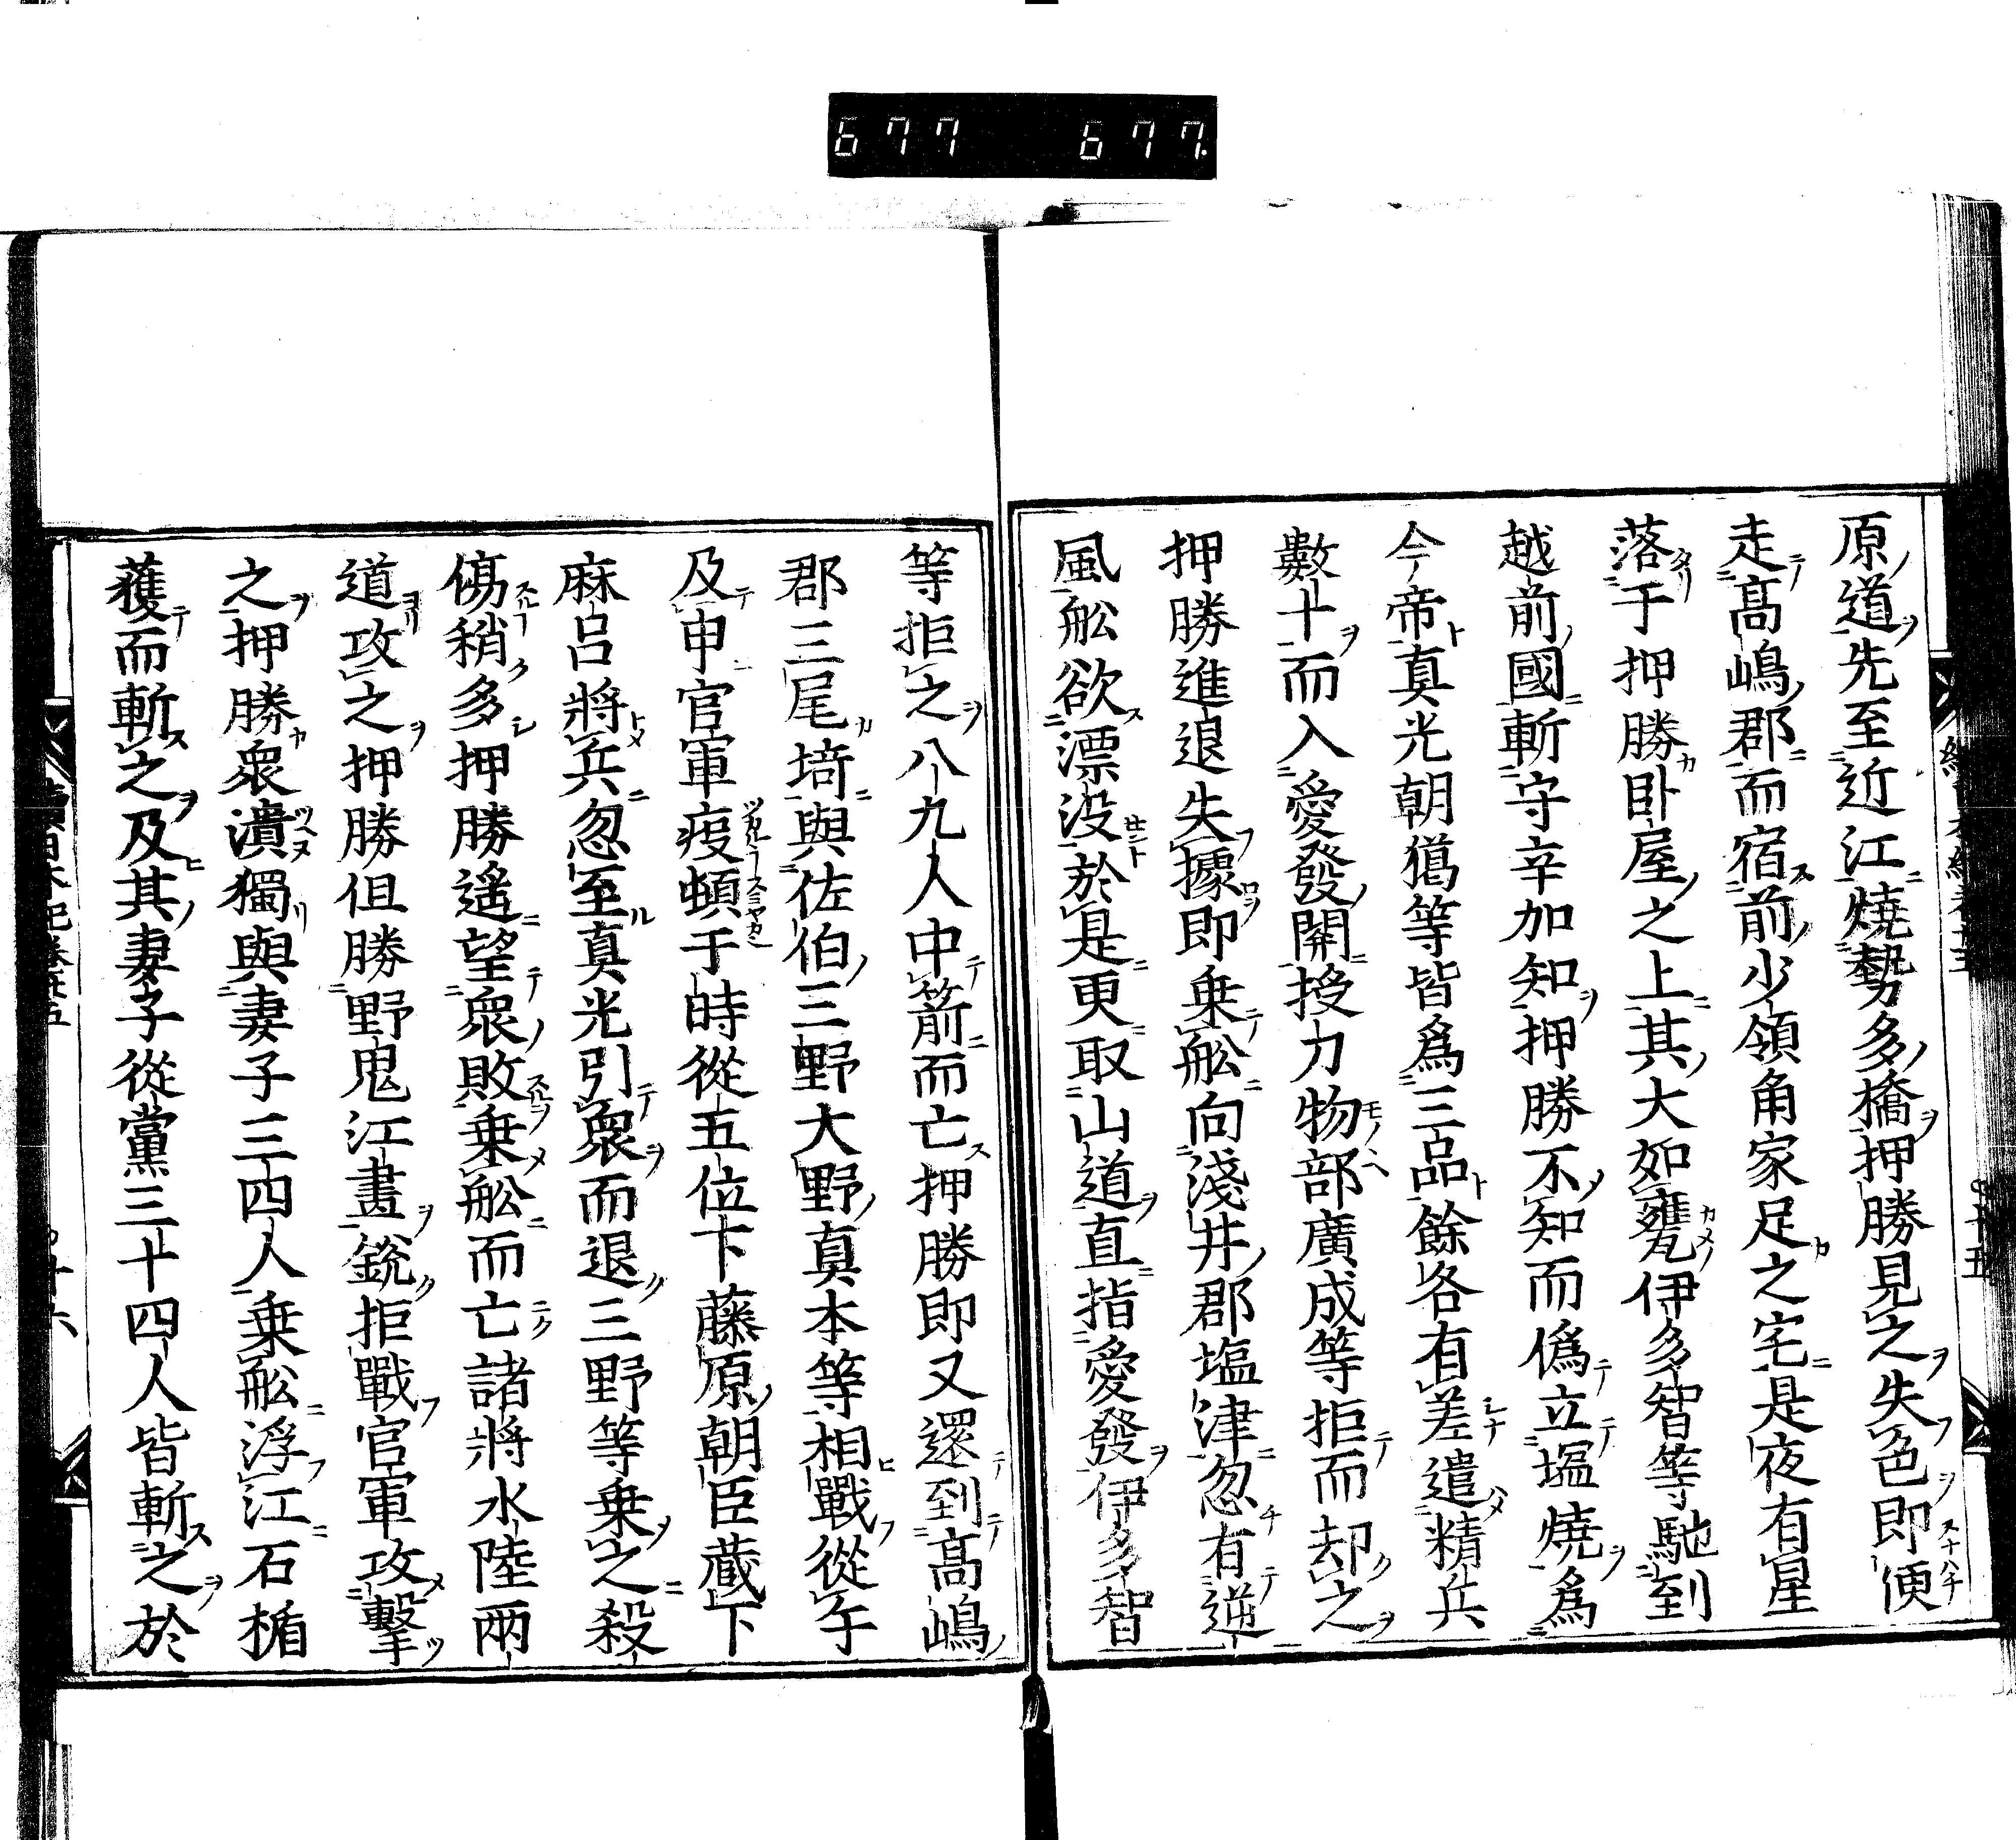 677 677.
原道先至近江燒勢多橋押勝見之失色即便
走髙嶋郡而宿前少領角家足之宅是夜有星
落于押勝卧屋之上其大如甕伊多智等馳到
越前國斬守辛加知押勝不知而僞立塩燒爲
今帝真光朝獦等皆爲三品餘各有差遣精兵
數十而入愛發關授刀物部廣成等拒而却之
押勝進退失據即乗舩向淺井郡塩津忽有逆
風舩欲漂没於是更取山道直指愛發伊多智
等拒之八九人中箭而亡押勝即又還到髙嶋
郡三尾埼與佐伯三野大野真本等相戰從午
及申官軍疲頓于時從五位下藤原朝臣藏下
麻呂將兵忽至真光引衆而退三野等乗之殺
傷稍多押勝遙望衆敗乗舩而亡諸將水陸兩
道攻之押勝伹勝野鬼江盡銳拒戰官軍攻擊
之押勝衆潰獨與妻子三四人乗舩浮江石楯
獲而斬之及其妻子從黨三十四人皆斬之於